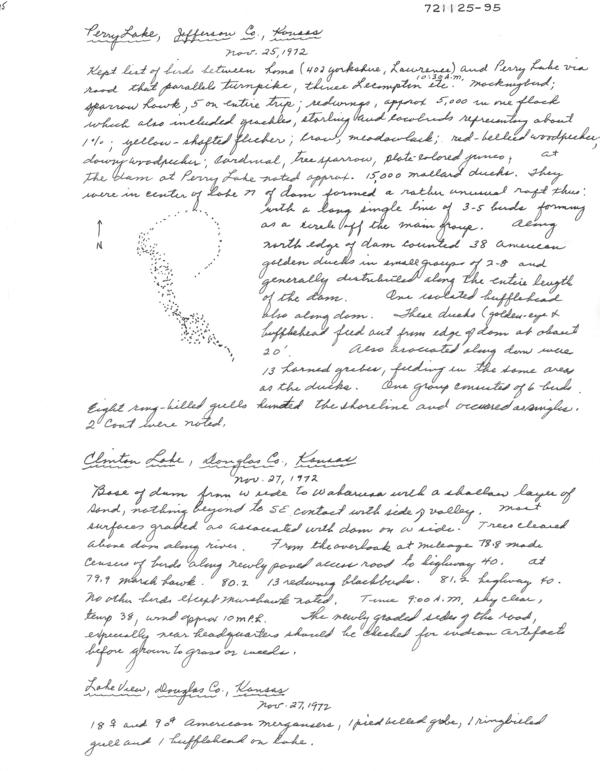 721125-95
Perry Lake, Jefferson Co., Kansas
Nov. 25, 1972
Kept list of birds between home (402 Yorkshire, Lawrence) and Perry Lake via
road that parallel turnpike, thence Lecompton etc. 10:30 A.M. mockingbird;
sparrow hawk, 5 on entire trip; redwings, approx 5,000 in one flock
which also included grackles, starling and cowbirds representing about
1%; yellow-shafted flicker; crow, meadowlark; red-bellied woodpecker,
downy woodpecker; cardinal, tree sparrow, slate-colored junco; at
the dam at Perry Lake noted approx. 15,000 mallard ducks. They
were in center of lake N of dam formed a rather unusual raft thus:
N
with a long single line of 3-5 birds forming
as a circle off the main group. Along
north edge of dam counted 38 American
golden ducks in small groups of 2-8 and
generally distributed along the entire length
of the dam. One isolated bufflehead
also along dam. These ducks (golden-eye &
bufflehead feed out from edge of dam at about
20'. Also associated along dam were
13 horned grebes, feeding in the same areas
as the ducks. One group consisted of 6 birds.
Eight ring-billed gulls hunted the shoreline and occurred as singles.
2 coot were noted.
Clinton Lake, Douglas Co., Kansas
Nov. 27, 1972
Base of dam from W side to Wakarusa with a shallow layer of
sand, nothing beyond to SE contact with side of valley. Most
surfaces graded as associated with dam on W side. Trees cleared
above dam along river. From the overlook at mileage 78.8 made
census of birds along newly paved access road to highway 40. at
79.9 marsh hawk. 80.2 13 redwing blackbirds. 81.2 highway 40.
No other birds except marshawk noted. Time 9:00 A.M., sky clear,
temp 38, wind approx 10 m.P.h. The newly graded sides of the road,
especially near headquarters should be checked for indian artifacts
before grown to grass or weeds.
Lake View, Douglas Co., Kansas
Nov. 27, 1972
18 ♀ and 9 ♂ American mergansers, 1 pied billed grebe, 1 ringbilled
gull and 1 bufflehead on lake.